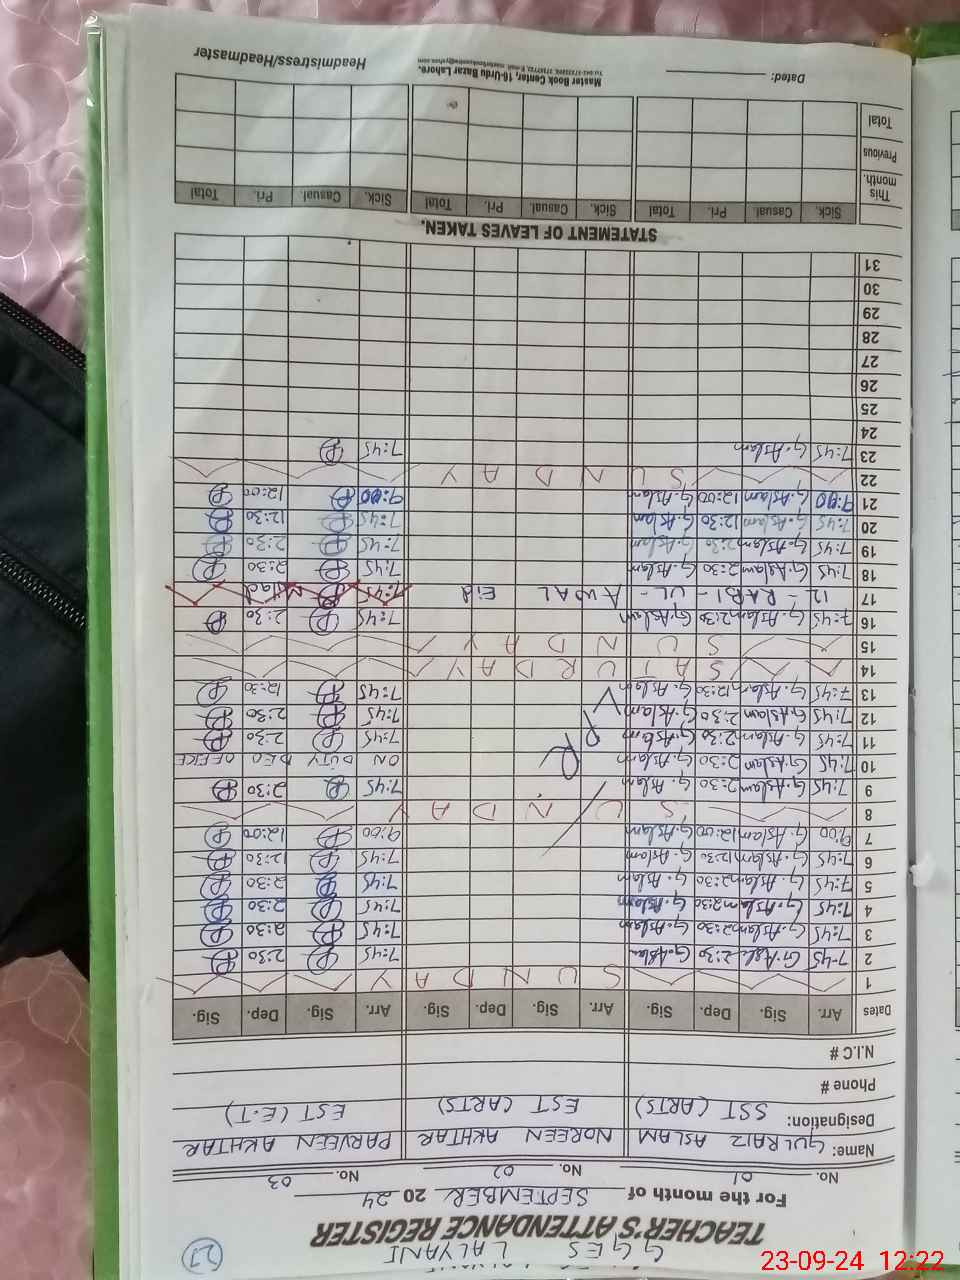 GGES LALYANI
27
TEACHER'S ATTENDANCE REGISTER
For the month of SEPTEMBER 2024
No. 01 No. 02 No. 03
Name: GULRAIZ ASLAM NOREEN AKHTAR PARVEEN AKHTAR
Designation: SST (ARTS) EST (ARTS) EST (E.T)
Phone #
N.I.C #
Dates Arr. Sig. Dep. Sig. Arr. Sig. Dep. Sig. Arr. Sig. Dep. Sig.
1 SUNDAY
2 7-45 G.Asl 2:30 G.Asla 7:45 P 2:30 P
3 7:45 G.Aslam 2:30 G.Aslam 7:45 P 2:30 P
4 7:45 G.Aslam 2:30 G.Aslam 7:45 P 2:30 P
5 7:45 G.Aslam 2:30 G.Aslam 7:45 P 2:30 P
6 7:45 G.Aslam 12:30 G.Aslam 7:45 P 12:30 P
7 9:00 G.Aslam 12:00 G.Aslam 9:00 P 12:00 P
8 SUNDAY
9 7:45 G.Aslam 2:30 G.Aslam 7:45 P 2:30 P
10 7:45 G.Aslam 2:30 G.Aslam ON DUTY DEO OFFICE
11 7:45 G.Aslam 2:30 G.Aslam 7:45 P 2:30 P
12 7:45 G.Aslam 2:30 G.Aslam 7:45 P 2:30 P
13 7:45 G.Aslam 12:30 G.Aslam 7:45 P 12:30 P
14 SATURDAY
15 SUNDAY
16 7:45 G.Aslam 2:30 G.Aslam 7:45 P 2:30 P
17 12 - RABI - UL - AWAL Eid 7:45
18 7:45 G.Aslam 2:30 G.Aslam 7:45 P 2:30 P
19 7:45 G.Aslam 2:30 G.Aslam 7:45 P 2:30 P
20 7:45 G.Aslam 12:30 G.Aslam 7:45 P 12:30 P
21 9:00 G.Aslam 12:00 G.Aslam 9:00 P 12:00 P
22 SUNDAY
23 7:45 G.Aslam 7:45 P
24
25
26
27
28
29
30
31
STATEMENT OF LEAVES TAKEN.
Sick. Casual. Pri. Total Sick. Casual. Pri. Total Sick. Casual. Pri. Total
This month.
Previous
Total
Dated: Master Book Center, 16-Urdu Bazar Lahore. Headmistress/Headmaster
23-09-24 12:22